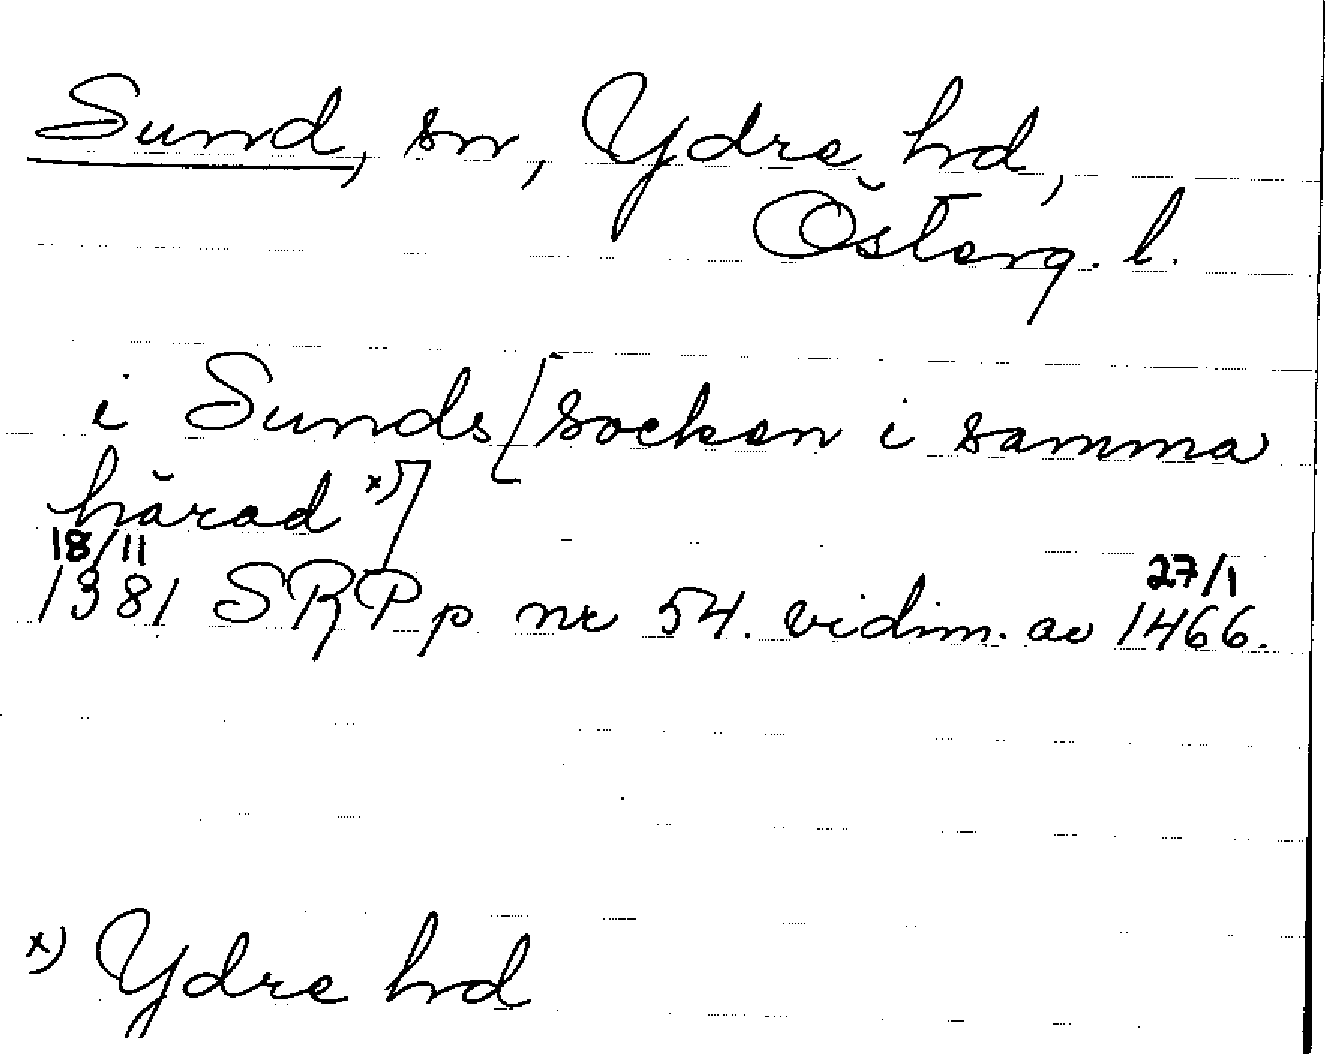 Sund, sn, Ydre hd,
Österg. l.
i Sunds [socken i samma
härad x)]
18/11
1381 SRPp nr 54. vidim. av 1466.
27/1
x) Ydre hd